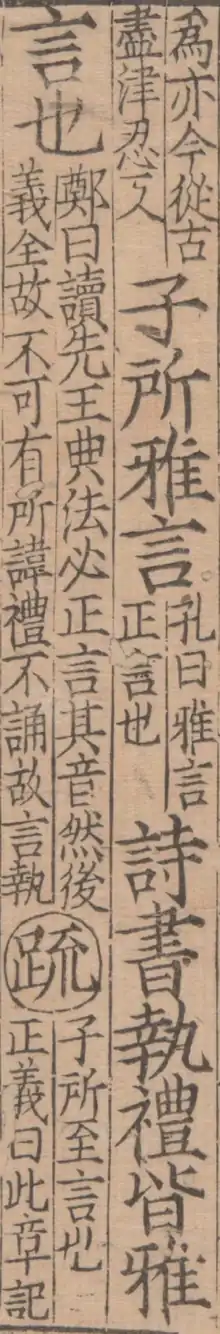 為亦今從古
盡津忍又
子所雅言
孔曰雅言
正言也
詩書執禮皆雅
言也
鄭曰讀先王典法必正言其音然後
義全故不可有所諱禮不誦故言執
疏
子所至言也
正義曰此章記